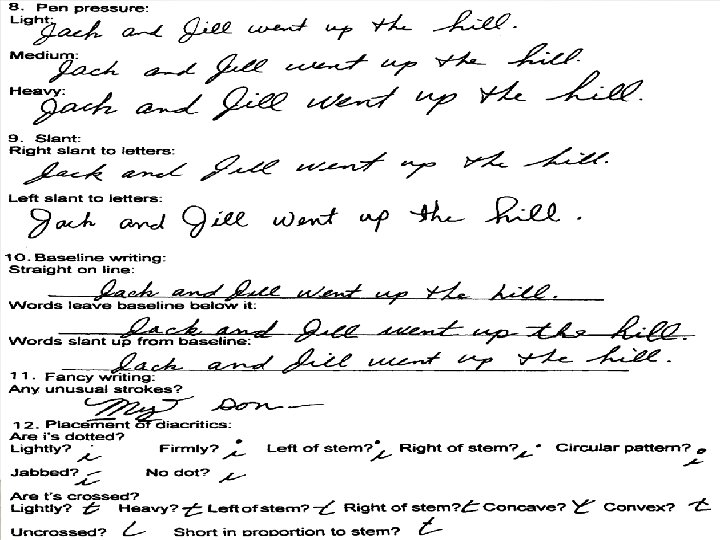 8. Pen pressure:
Light: Jack and Jill went up the hill.
Medium: Jack and Jill went up the hill.
Heavy: Jack and Jill went up the hill.
9. Slant:
Right slant to letters:
Jack and Jill went up the hill.
Left slant to letters:
Jack and Jill went up the hill.
10. Baseline writing:
Straight on line:
Jack and Jill went up the hill.
Words leave baseline below it:
Jack and Jill went up the hill.
Words slant up from baseline:
Jack and Jill went up the hill.
11. Fancy writing:
Any unusual strokes?
My son
12. Placement of diacritics:
Are i's dotted?
Lightly? i Firmly? i Left of stem? i Right of stem? i Circular pattern? i
Jabbed? i No dot? i
Are t's crossed?
Lightly? t Heavy? t Left of stem? t Right of stem? t Concave? t Convex? t
Uncrossed? t Short in proportion to stem? t